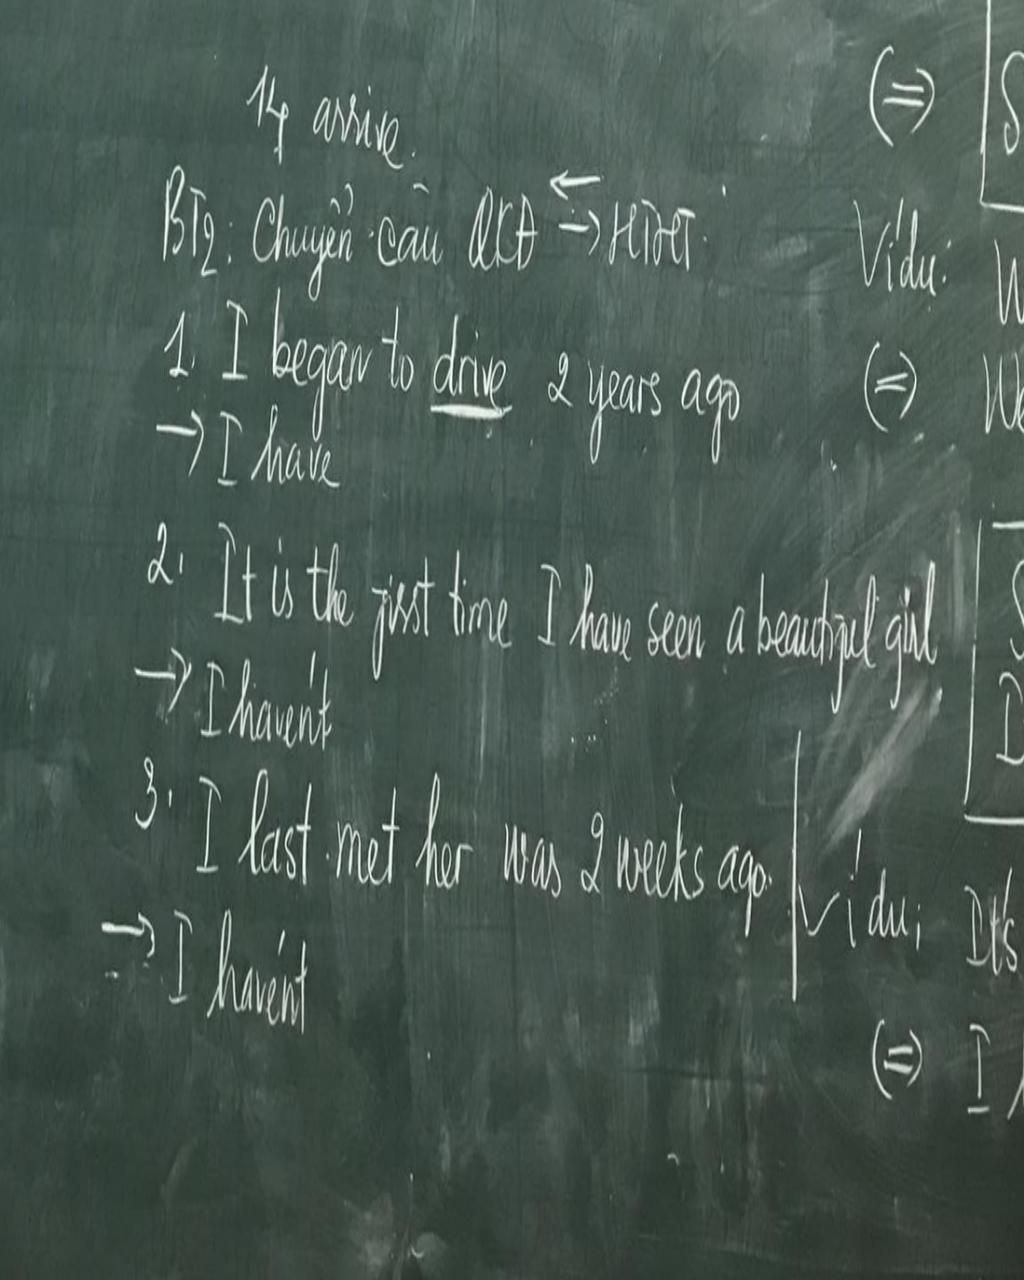 14 arrive.
BT2: Chuyển câu QKĐ ⇄ HTHT.
1. I began to drive 2 years ago
→ I have
2. It is the first time I have seen a beautiful girl
→ I haven't
3. I last met her was 2 weeks ago.
→ I haven't
(=)
Ví dụ:
(=)
Ví dụ: It's
(=) I